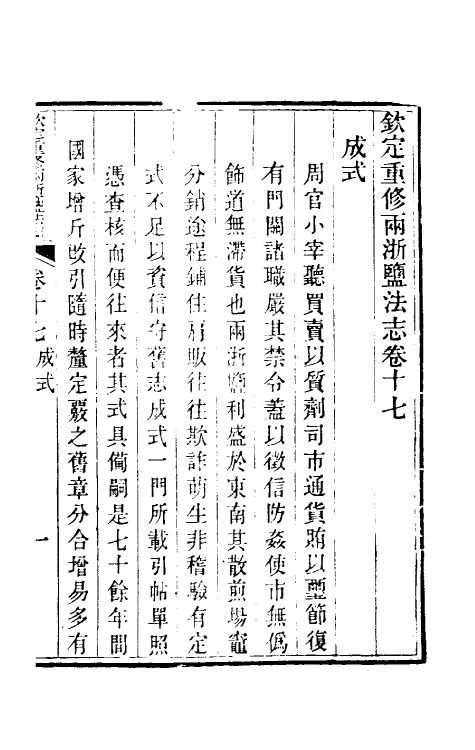 欽定重修兩浙鹽法志卷十七
成式
周官小宰聽買賣以質劑司市通貨賄以璽節復
有門關諸職嚴其禁令蓋以徵信防姦使市無偽
飾道無滯貨也兩浙鹽利盛於東南其散煎場竈
分銷途程鋪住肩販往往欺詐萌生非稽驗有定
式不足以資信守舊志成式一門所載引帖單照
憑查核而便往來者其式具備嗣是七十餘年間
國家增斤改引隨時釐定覈之舊章分合增易多有
欽定重修兩浙鹽法志
卷十七 成式
一